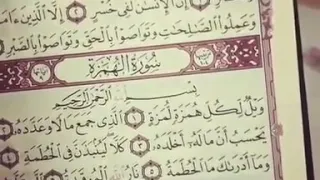 خُسْرٍ ۝٢ إِلَّا الَّذِينَ ءَامَ
وَعَمِلُوا۟ الصَّـٰلِحَـٰتِ وَتَوَاصَوْا۟ بِالْحَقِّ وَتَوَاصَوْا۟ بِالصَّبْرِ
سُورَةُ الْهُمَزَةِ
بِسْمِ اللَّهِ الرَّحْمَـٰنِ الرَّحِيمِ
وَيْلٌ لِّكُلِّ هُمَزَةٍ لُّمَزَةٍ ۝١ الَّذِى جَمَعَ مَالًا وَعَدَّدَهُۥ ۝٢
يَحْسَبُ أَنَّ مَالَهُۥٓ أَخْلَدَهُۥ ۝٣ كَلَّا ۖ لَيُنۢبَذَنَّ فِى الْحُطَمَةِ ۝٤
وَمَآ أَدْرَىٰكَ مَا الْحُطَمَةُ ۝٥